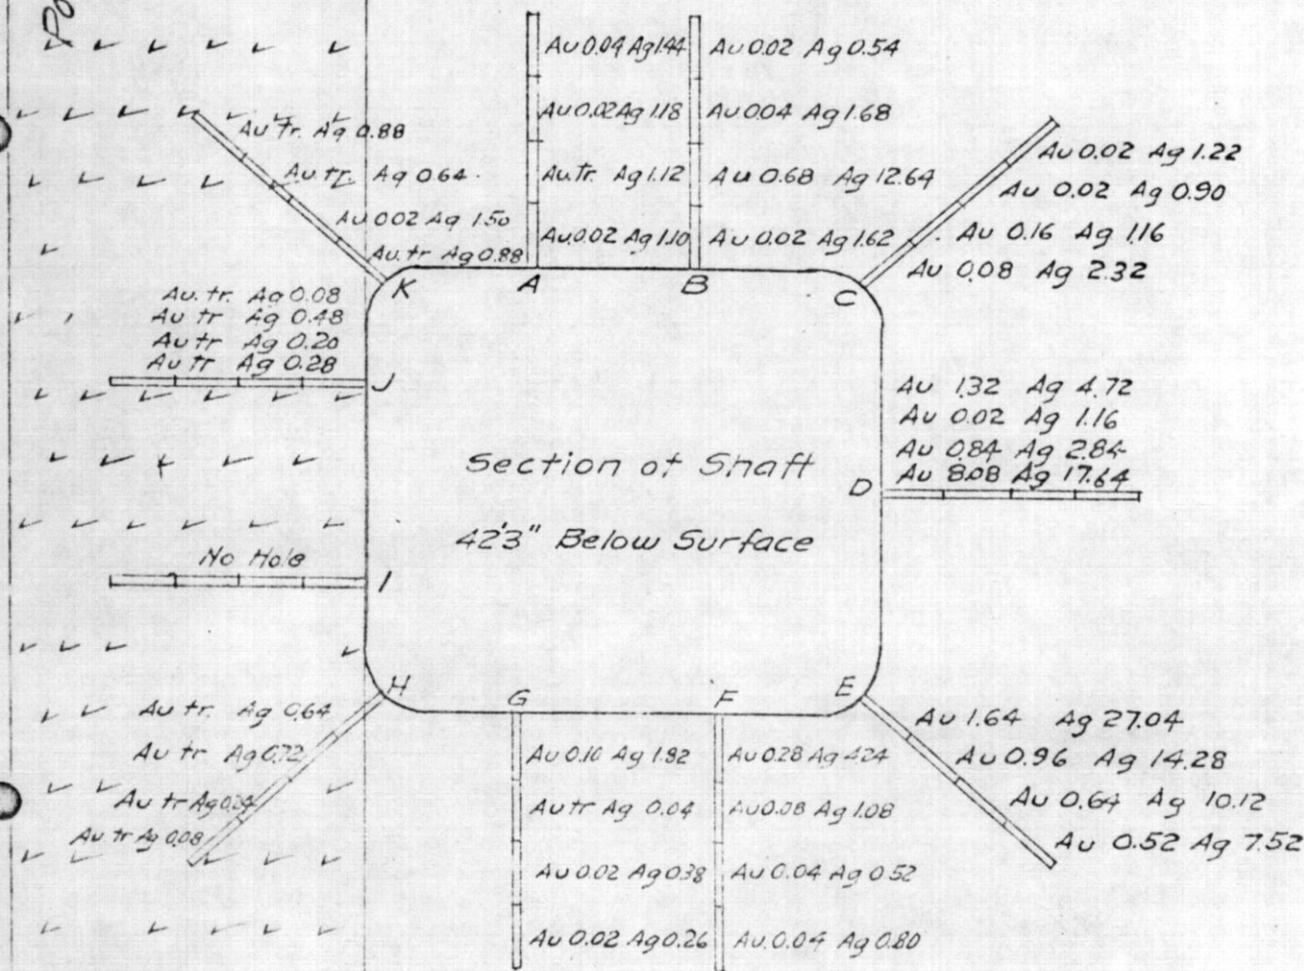 Po
Au 0.04 Ag 1.44
Au 0.02 Ag 0.54
Au 0.02 Ag 1.18
Au 0.04 Ag 1.68
Au tr. Ag 1.12
Au 0.68 Ag 12.64
Au 0.02 Ag 1.10
Au 0.02 Ag 1.62
Au tr. Ag 0.88
Au tr. Ag 0.64
Au 0.02 Ag 1.50
Au. tr Ag 0.88
Au 0.02 Ag 1.22
Au 0.02 Ag 0.90
Au 0.16 Ag 1.16
Au 0.08 Ag 2.32
K A B C
Au. tr. Ag 0.08
Au tr Ag 0.48
Au tr Ag 0.20
Au tr Ag 0.28
J
Au 1.32 Ag 4.72
Au 0.02 Ag 1.16
Au 0.84 Ag 2.84
Au 8.08 Ag 17.64
D
Section of Shaft
42'3" Below Surface
No Hole
I
H G F E
Au tr. Ag 0.64
Au tr. Ag 0.72
Au tr Ag 0.24
Au tr Ag 0.08
Au 0.10 Ag 1.92
Au 0.28 Ag 4.24
Au tr Ag 0.04
Au 0.08 Ag 1.08
Au 0.02 Ag 0.38
Au 0.04 Ag 0.52
Au 0.02 Ag 0.26
Au 0.04 Ag 0.80
Au 1.64 Ag 27.04
Au 0.96 Ag 14.28
Au 0.64 Ag 10.12
Au 0.52 Ag 7.52